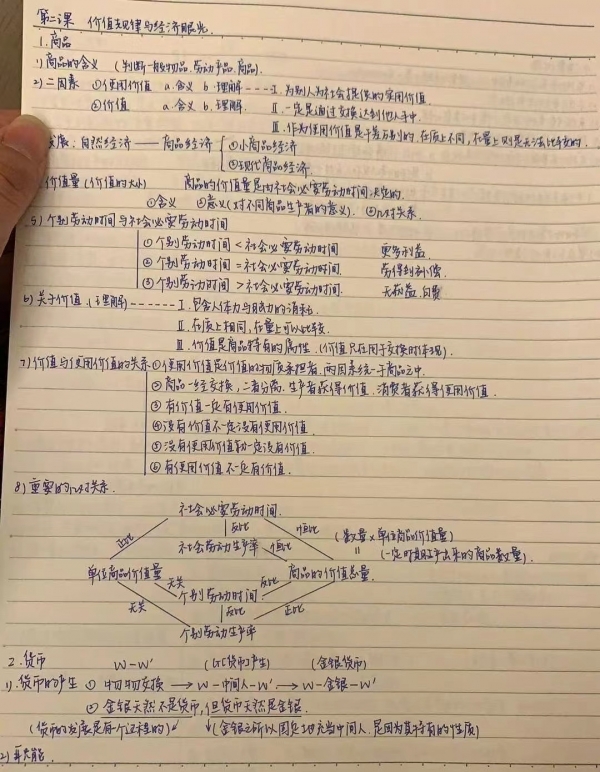 第二课 价值规律与经济眼光
1.商品
1)商品的含义 (判断一般物品.劳动产品.商品).
2)二因素 ①使用价值 a.含义 b.理解----I.为别人为社会提供的实用价值.
②价值 a.含义 b.理解. II.一定是通过交换达到他人手中.
III.作为使用价值是千差万别的,在质上不同,在量上则是无法比较的.
发展:自然经济——商品经济 ①小商品经济
②现代商品经济.
价值量(价值的大小) 商品的价值量是由社会必要劳动时间决定的.
①含义 ②意义(对不同商品生产者的意义).
5)个别劳动时间与社会必要劳动时间
①个别劳动时间<社会必要劳动时间 更多利益.
②个别劳动时间=社会必要劳动时间. 劳得到补偿.
③个别劳动时间>社会必要劳动时间. 无利益.白费
6)关于价值.(理解)------I.包含人体力与脑力的消耗.
II.在质上相同,在量上可以比较.
III.价值是商品特有的属性.(价值只在用于交换时体现).
7)价值与使用价值的关系①使用价值是价值的物质承担者.两因素统一于商品之中.
②商品一经交换,二者分离,生产者获得价值.消费者获得使用价值.
③有价值一定有使用价值.
④没有价值不一定没有使用价值.
⑤没有使用价值就一定没有价值.
⑥有使用价值不一定有价值.
8)重要的 关系.
社会必要劳动时间.
正比 反比 恒比 (数量×单位商品价值量)
社会劳动生产率 恒比 = (一定时期生产出来的商品数量)
单位商品价值量 无关 反比 商品的价值总量.
个别劳动时间.
无关 反比 正比
个别劳动生产率
2.货币 W-W' (货币产生) (金银货币)
1).货币的产生 ①物物交换→W-中间人-W'.→W-金银-W'
②金银天然不是货币,但货币天然是金银.
(货币的发展是有个过程的) (金银之所以固定地充当中间人.是因为其特有的性质)
2)其